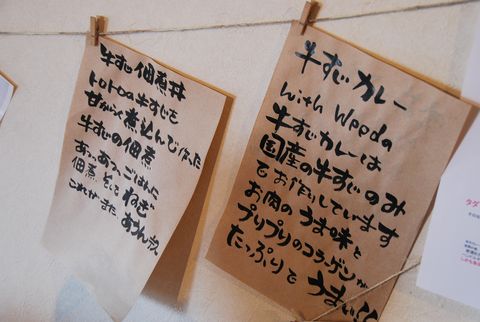 牛すじ佃煮丼
トロトロ牛すじを
甘がらく煮込んで作った
牛すじの佃煮
あっあつごはんに
佃煮そしてねぎ
これがまた、あうんです
牛すじカレー
with Weeda
牛すじカレーは
国産の牛すじのみ
でお作りしています
お肉のうま味と
プリプリのコラーゲンが
たっぷりでうまい!!
タダ